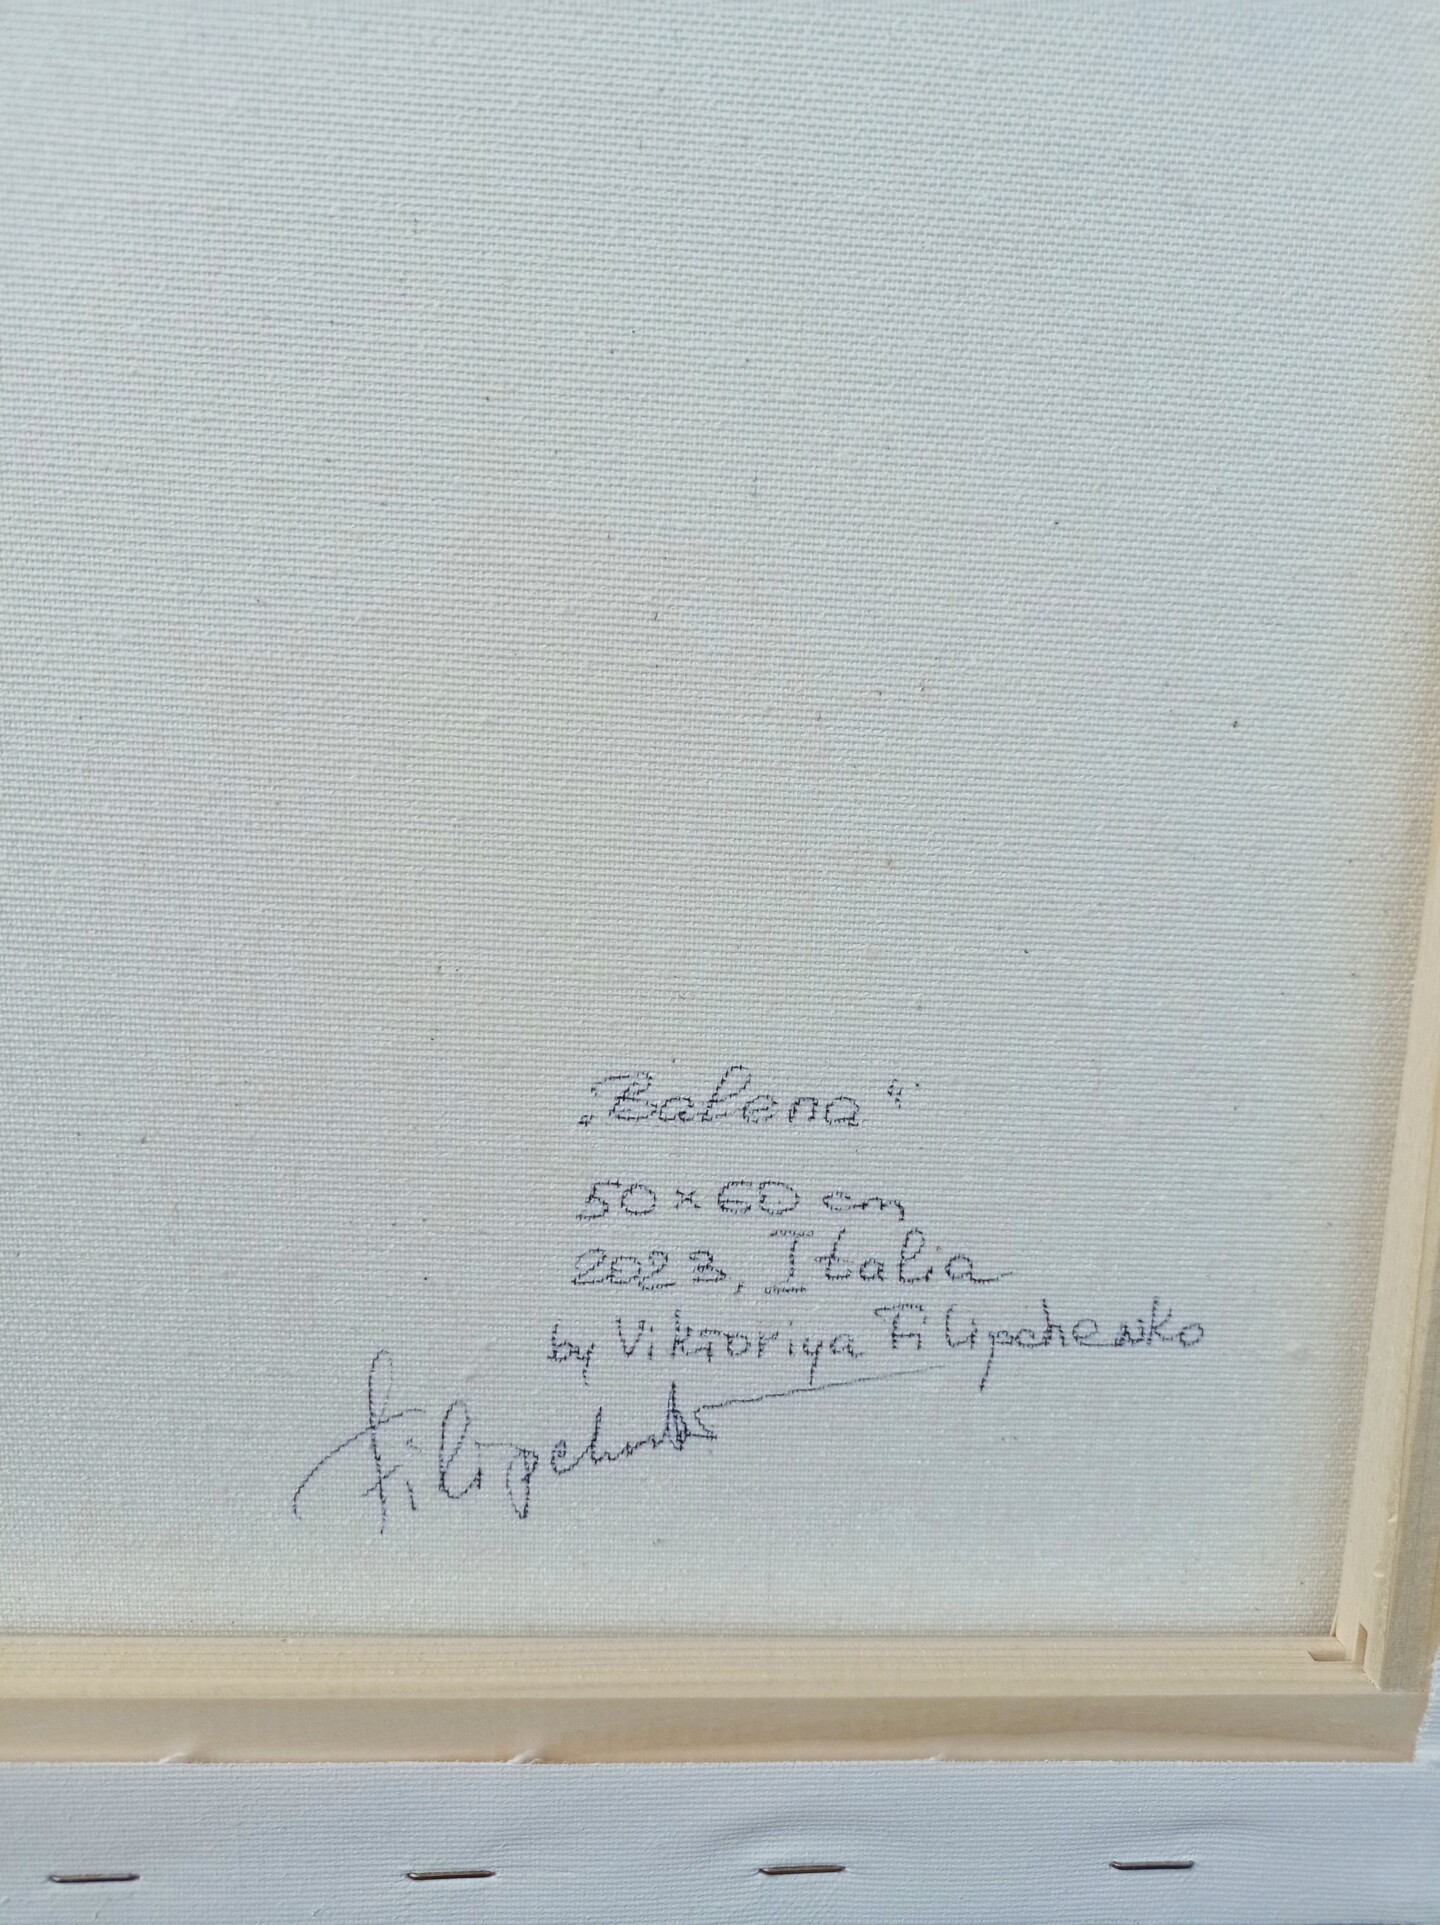 „Balena“
50×60 cm
2023, Italia
by Viktoriya Filipchenko
Filipchenko